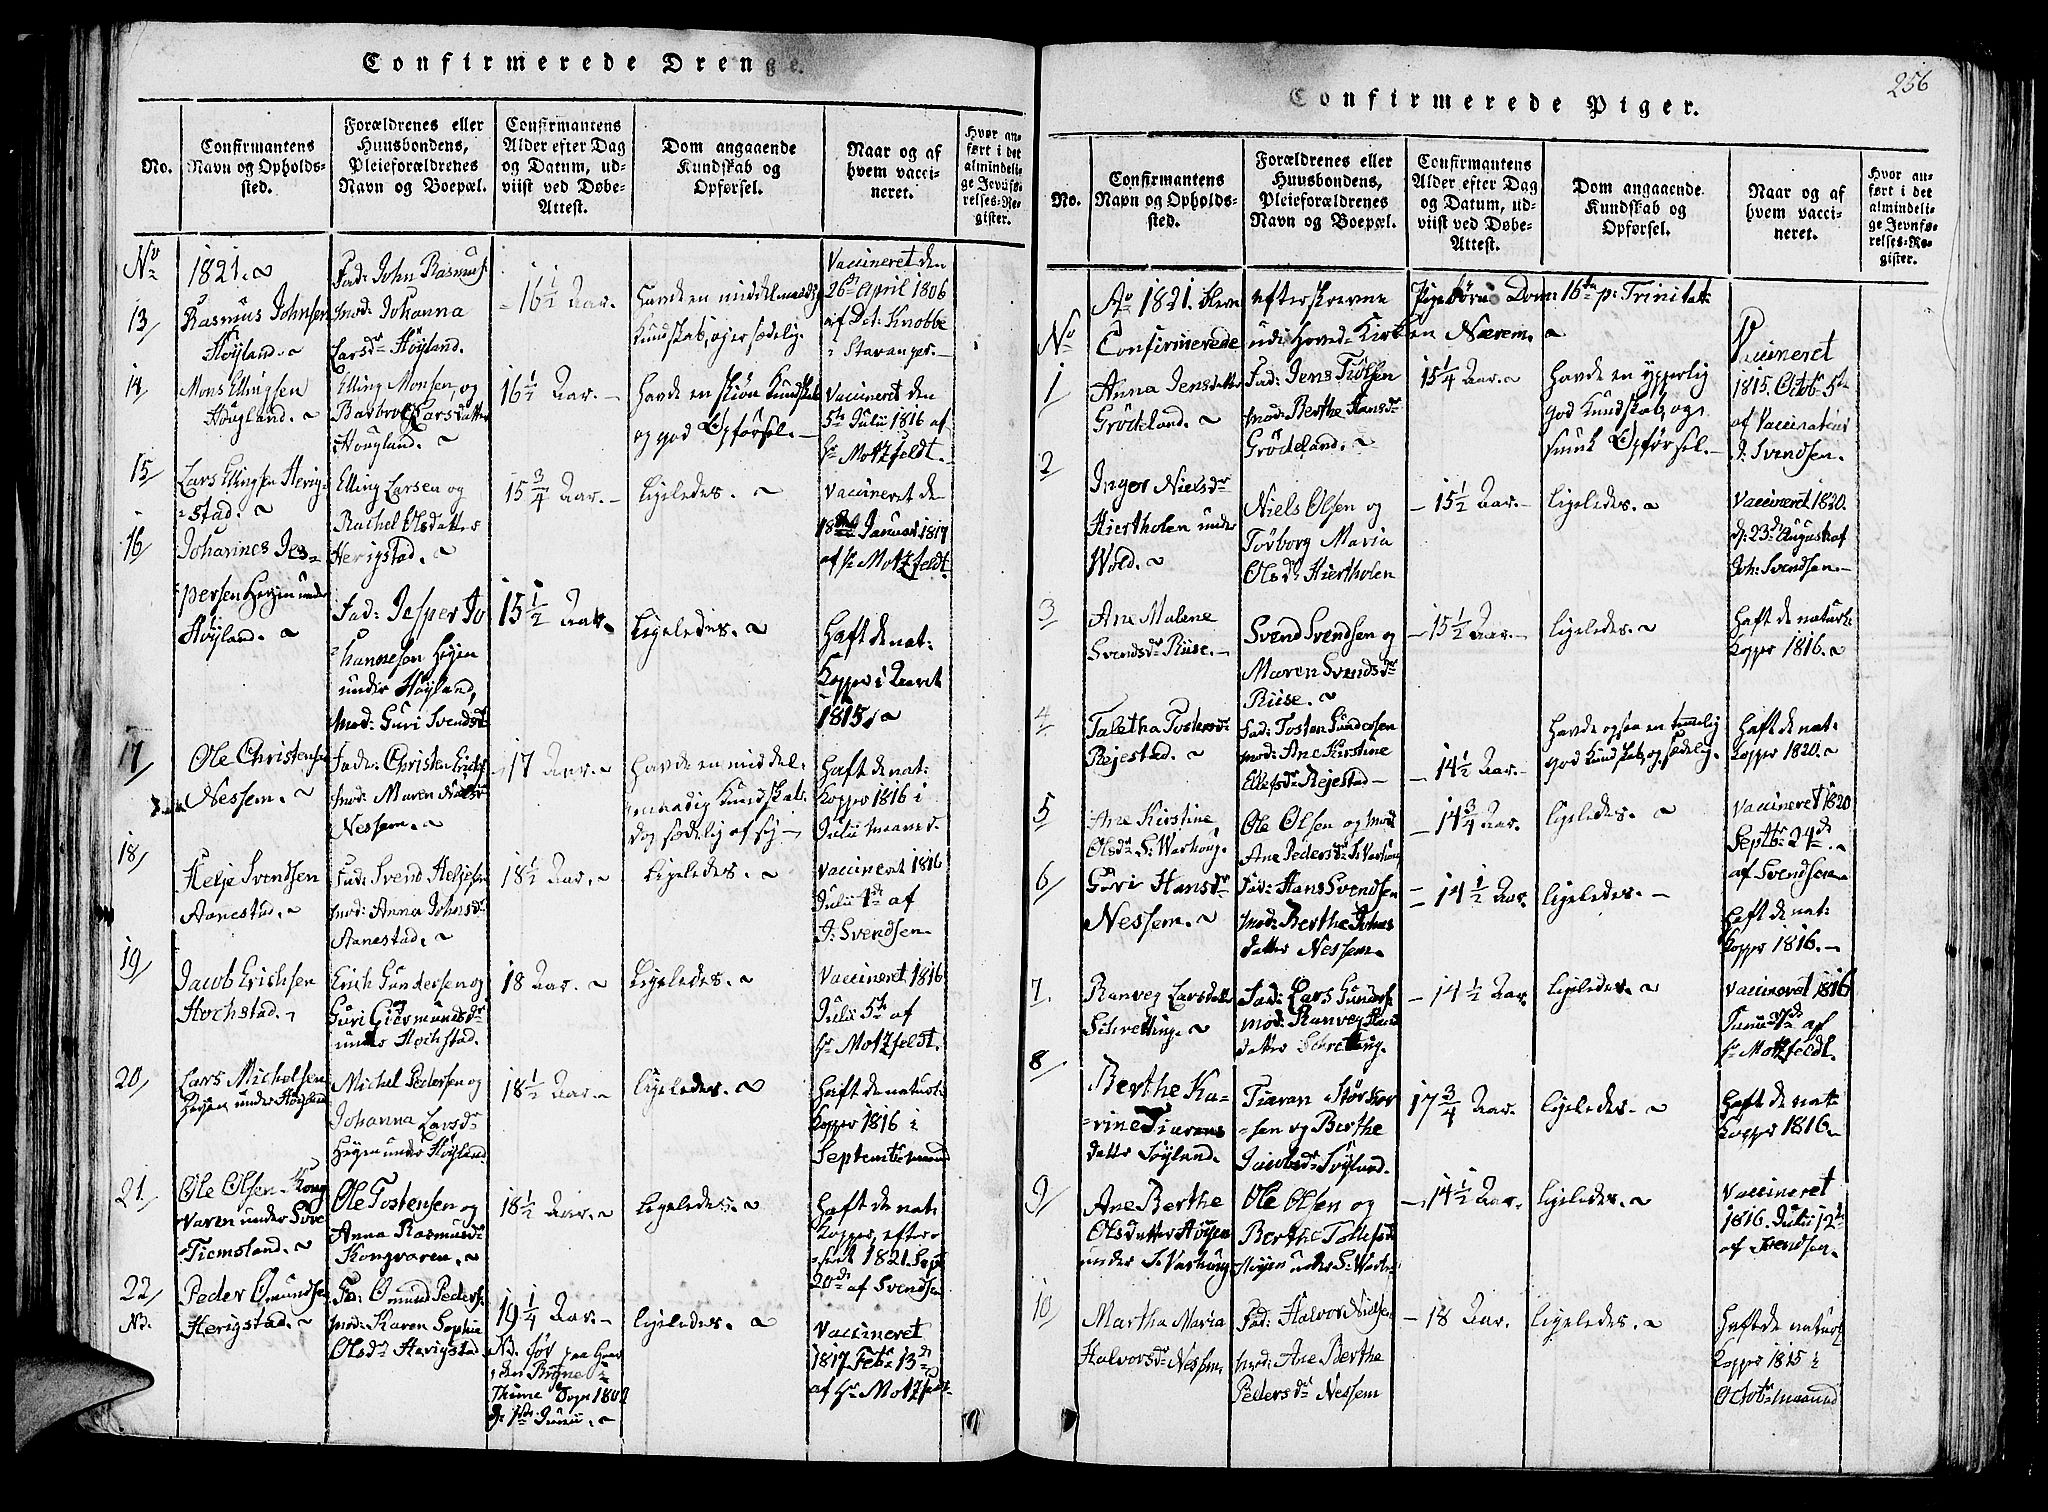 Confirmerede Drenge.
No.
Confirmantens
Navn og Opholds-
sted.
Forældrenes eller
Huusbondens,
Pleieforældrenes
Navn og Boepæl.
Confirmantens
Alder efter Dag
og Datum, ud-
viist ved Døbe-
Attest.
Dom angaaende
Kundskab og
Opførsel.
Naar og af
hvem vacci-
neret.
Hvor an-
ført i det
almindeli-
ge Jevnfø-
relses-Re-
gister.
No
1821.
13/
Rasmus Johnsen
Höyland.
Fad: John Rasmus:
Mod: Johanna
Larsdr Höyland.
16 1/2 Aar.
Havde en middelmaadig
Kundskab, og er sædelig.
Vaccineret den
26de April 1806
af Dct: Knobbe
i Stavanger.
14/
Mons Ellingsen
Höugland.
Elling Monsen, og
Barbro Larsdatter
Höugland.
16 1/2 Aar.
Havde en skiøn Kundskab
og god Opførsel.
Vaccineret den
5te Julii 1816 af
Hr Motzfeldt.
15/
Lars Ellingsen Herig-
stad.
Elling Larsen og
Rachel Olsdatter
Herigstad.
15 3/4 Aar.
Ligeledes.
Vaccineret de
18de Januar 1817
af Hr Motzfeldt.
16/
Johannes Jes-
persen Heyen under
Höyland.
Fad: Jesper Jo
hannesen Heyen
under Höyland,
Mod: Guri Svendsdr
15 1/2 Aar.
Ligeledes.
Haft de nat:
Kopper i Aaret
1815.
17/
Ole Christensen
Nessem.
Fader: Christen Erichs:
Mod: Maren
Nessem.
17 Aar.
Havde en middel-
maadig Kundskab
og sædelig
Haft de nat:
Kopper 1816 i
Julii maaned.
18/
Helje Svendsen
Aanestad.
Fad: Svend Heljesen
Mod: Anna Johnsdr
Aanestad.
18 1/2 Aar.
Ligeledes.
Vaccineret 1816
Julii 1de af
J. Svendsen.
19/
Jacob Erichsen
Hochstad.
Erich Gundersen og
Guri Giermundsdr
under Hochstad.
18 Aar.
Ligeledes.
Vaccineret 1816
Julii 5te af
Hr Motzfeldt.
20/
Lars Michelsen
Heyen under Höyland
Michel Pedersen og
Johanna Larsdr
Heyen under Höyland.
18 1/2 Aar.
Ligeledes.
Haft de naturl:
Kopper 1816 i
Septembr maaned
21/
Ole Olsen Kong
varen under
Tiemsland.
Ole Tostensen og
Anna Rasmusdr
Kongvaren.
18 1/2 Aar.
Ligeledes.
Haft de nat:
Kopper, efter-
1821. Sept:
20de af Svendsen
22/
Nb.
Peder Omundsen
Herigstad.
Fr: Omund Peders:
Mod: Karen Sophie
Olsdr Herigstad.
19 1/4 Aar.
Nb. för paa
den Bryne i
Thime Sogn 1802
d: 1de Junii.
Ligeledes.
Vaccineret
1817 Febr 13de
af Hr Motzfeldt.
256
Confirmerede Piger.
No.
Confirmantens
Navn og Opholds-
sted.
Forældrenes eller
Huusbondens,
Pleieforældrenes
Navn og Boepæl.
Confirmantens
Alder efter Dag
og Datum, ud-
viist ved Døbe-
Attest.
Dom angaaende
Kundskab og
Opførsel.
Naar og af
hvem vacci-
neret.
Hvor an-
ført i det
almindeli-
ge Jevnfø-
relses-Re-
gister.
Ao 1821. blev efterskrevne Pigebörn Dom: 16de p: Trinitat:
No Confirmerede udi Hoved-Kirken Nærem.
1/
Anna Jensdatter
Grödeland.
Fad: Jens Tiölsen
Mod: Berthe Hansdr
Grödeland.
15 1/4 Aar.
Havde en ypperlig
god Kundskab, og
smuk Opførsel.
Vaccineret
1815. Octob. 5te
af Vaccinateur
J. Svendsen.
2/
Inger Nielsdr
Hiertholen under
Wold.
Niels Olsen og
Torborg Maria
Olsdr Hiertholen
15 1/2 Aar.
Ligeledes.
Vaccineret 1820.
d: 23de August af
Joh: Svendsen.
3/
Ane Malene
Svendsdr Riise.
Svend Svendsen og
Maren Svendsdr
Riise.
15 1/2 Aar.
Ligeledes.
Haft de naturl:
Kopper 1816.
4/
Taletha Tostensdr
Rejestad.
Fad: Tosten Gundersen
Mod: Ane Kirstine
Ellefsdr Rejestad
14 1/2 Aar.
Havde ogsaa en temmelig
god Kundskab, og sædelig.
Haft de nat:
Kopper 1820.
5/
Ane Kirstine
Olsdr S. Warhoug.
Ole Olsen og Mod
Ane Pedersdr S. Varhoug
14 3/4 Aar.
Ligeledes.
Vaccineret 1820
Septbr 24de.
af Svendsen.
6/
Guri Hansdr
Nessem.
Fad: Hans Svendsen
Mod: Berthe Johns
datter Nessem.
14 1/2 Aar.
Ligeledes.
Haft de nat:
Kopper 1816.
7.
Ranveg Larsdatter
Schretting.
Fad: Lars Gunders:
Mod: Ranveg
datter Schretting.
14 1/2 Aar
Ligeledes.
Vaccineret 1816
Junii 7de af
Hr Motzfeldt.
8/
Berthe Ka-
rine Tiærans
datter Söyland.
Tiæran Störkor
sen og Berthe
Jacobsdr Söyland.
17 3/4 Aar.
Ligeledes.
Haft de nat:
Kopper 1816.
9/
Ane Berthe
Olsdatter Höyen
under S. Varhoug
Ole Olsen og
Berthe Tollefsdr
Höyen under S. Warh:
14 1/2 Aar.
Ligeledes.
Vaccineret
1816. Julii 12te
af Svendsen.
10/
Martha Maria
Halvorsdr Nessem
Fad: Halvor Nielsen
Mod: Ane Berthe
Pedersdr Nessem
18 Aar.
Ligeledes.
Haft de naturl:
Kopper 1815 i
Octobr maaned